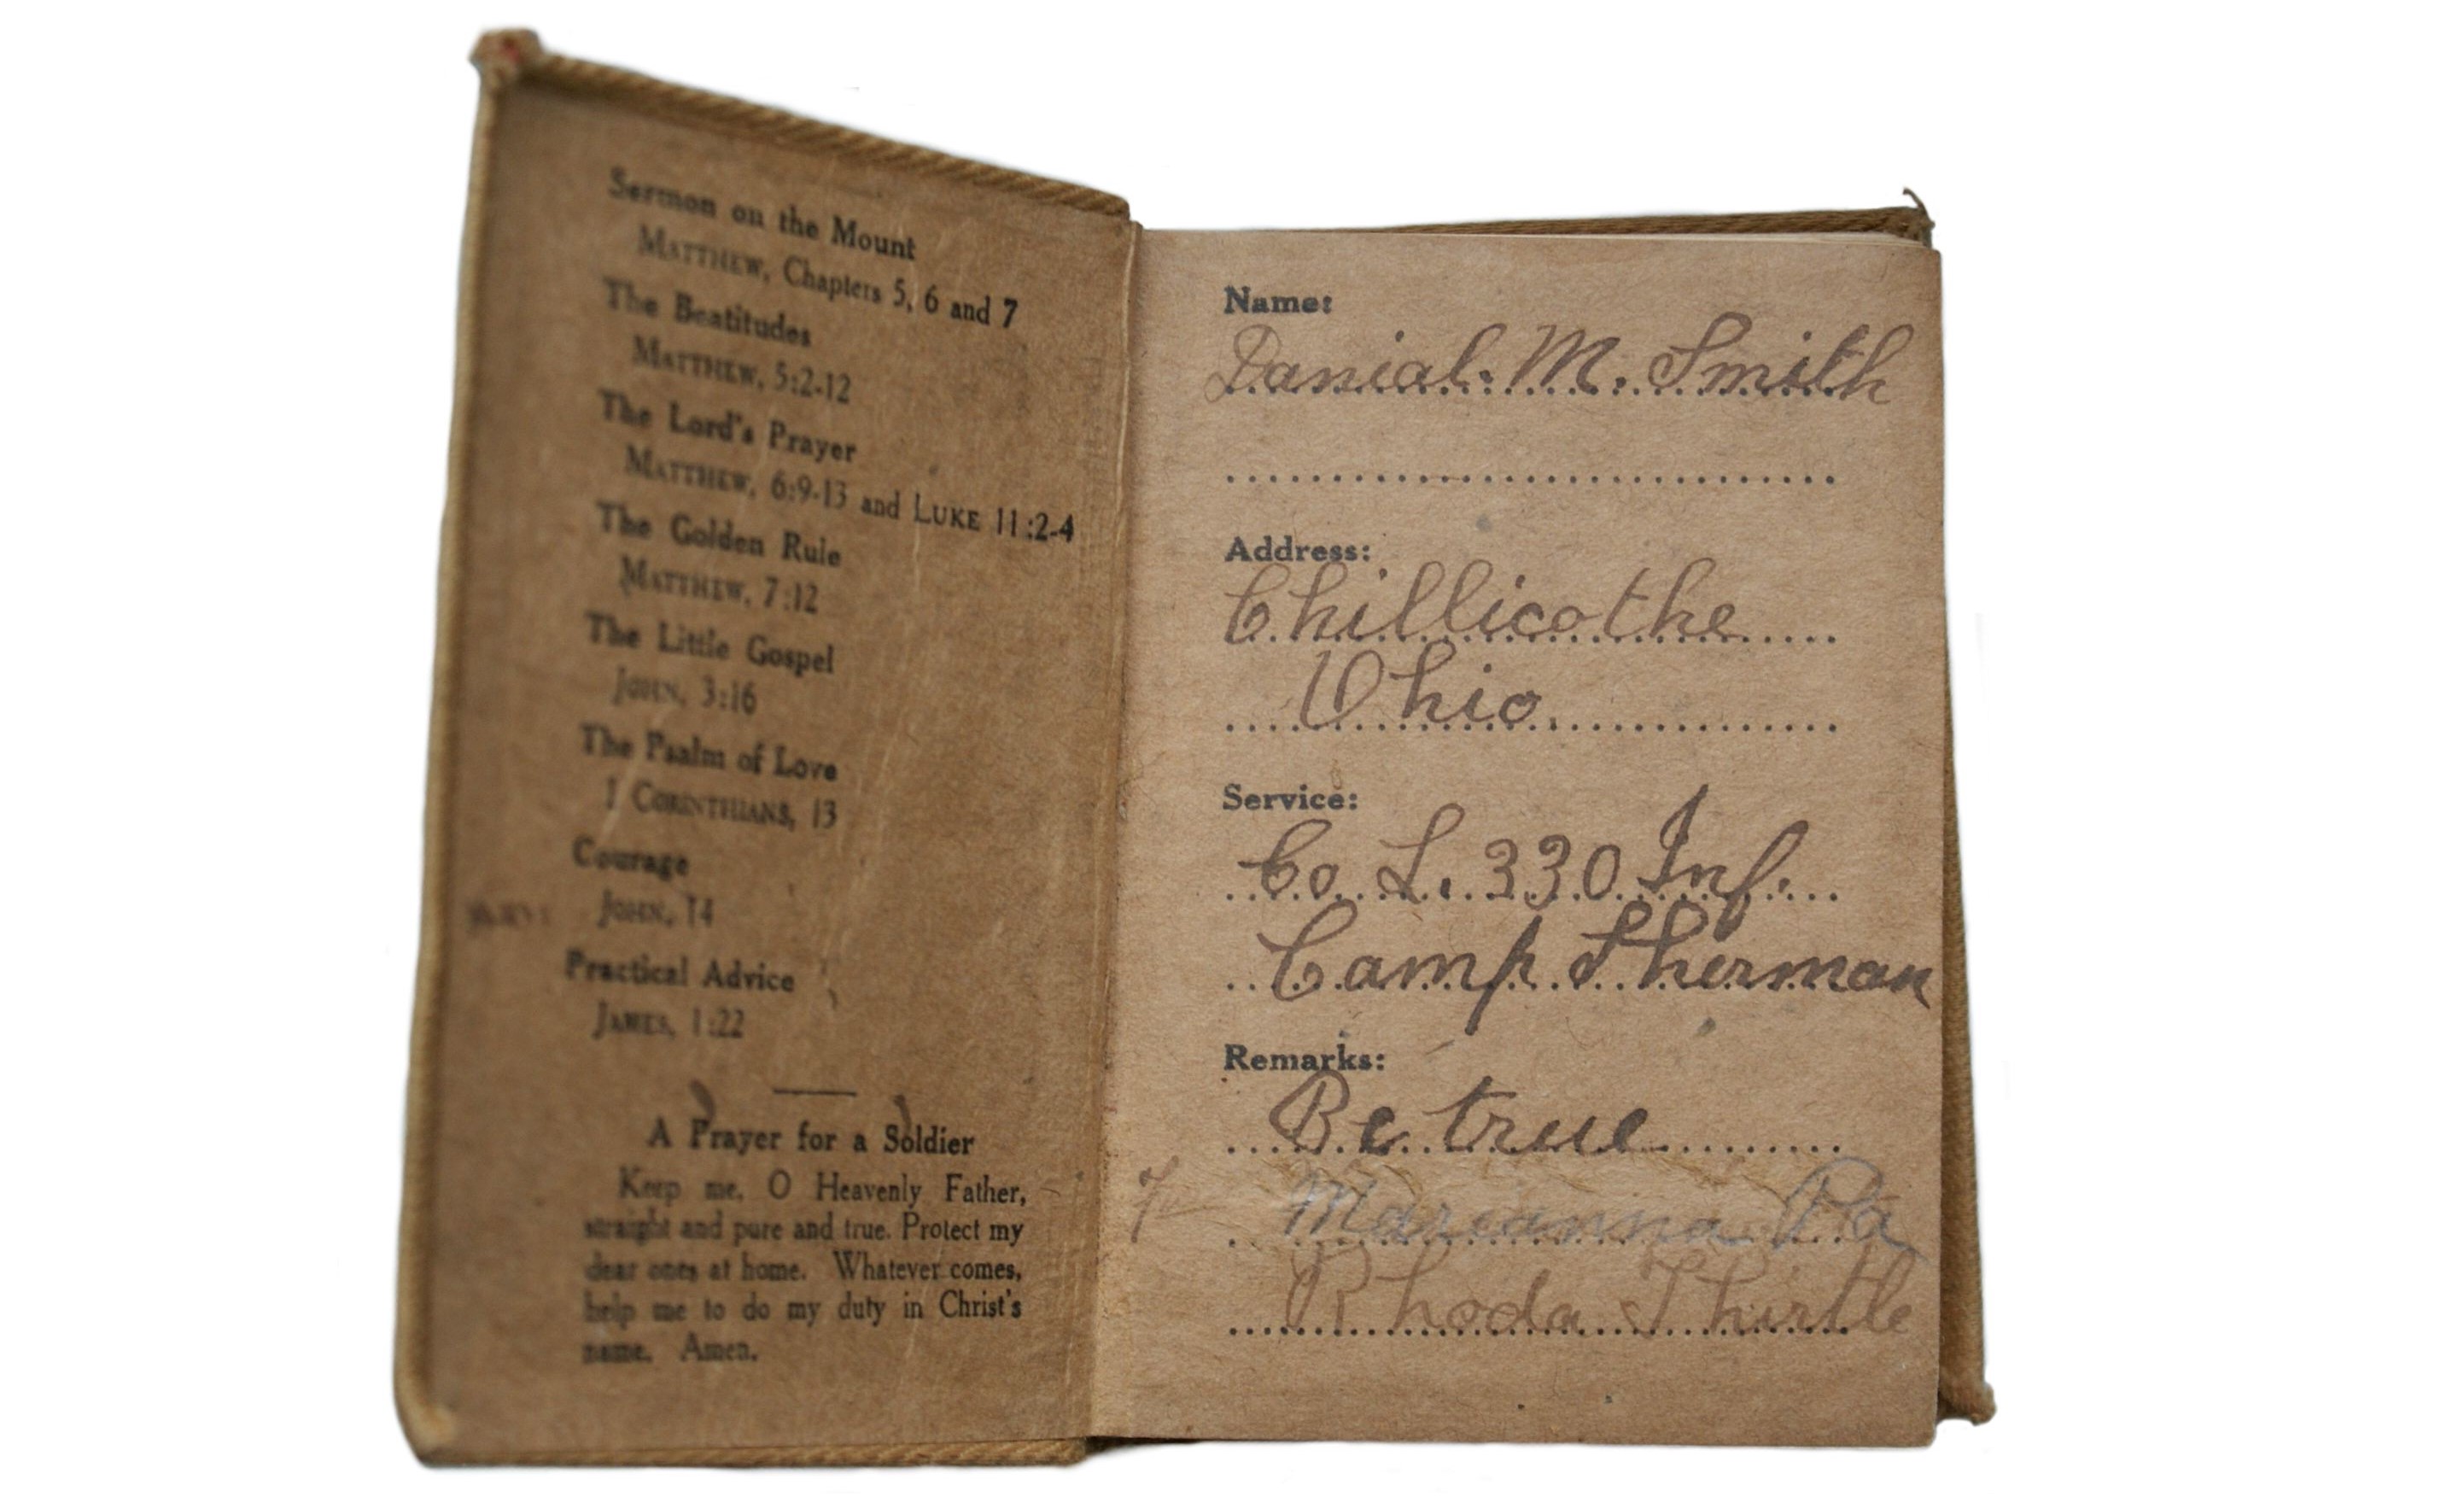 Sermon on the Mount
MATTHEW, Chapters 5, 6 and 7
The Beatitudes
MATTHEW, 5:2-12
The Lord's Prayer
MATTHEW, 6:9-13 and LUKE 11:2-4
The Golden Rule
MATTHEW, 7:12
The Little Gospel
JOHN, 3:16
The Psalm of Love
I CORINTHIANS, 13
Courage
JOHN, 14
Practical Advice
JAMES, 1:22
A Prayer for a Soldier
Keep me, O Heavenly Father,
straight and pure and true. Protect my
dear ones at home. Whatever comes,
help me to do my duty in Christ's
name. Amen.
Name:
Danial. M. Smith
Address:
Chillicothe
Ohio
Service:
Co L. 330 Inf.
Camp Sherman
Remarks:
Be true
Marianna Pa
Rhoda Thirtle